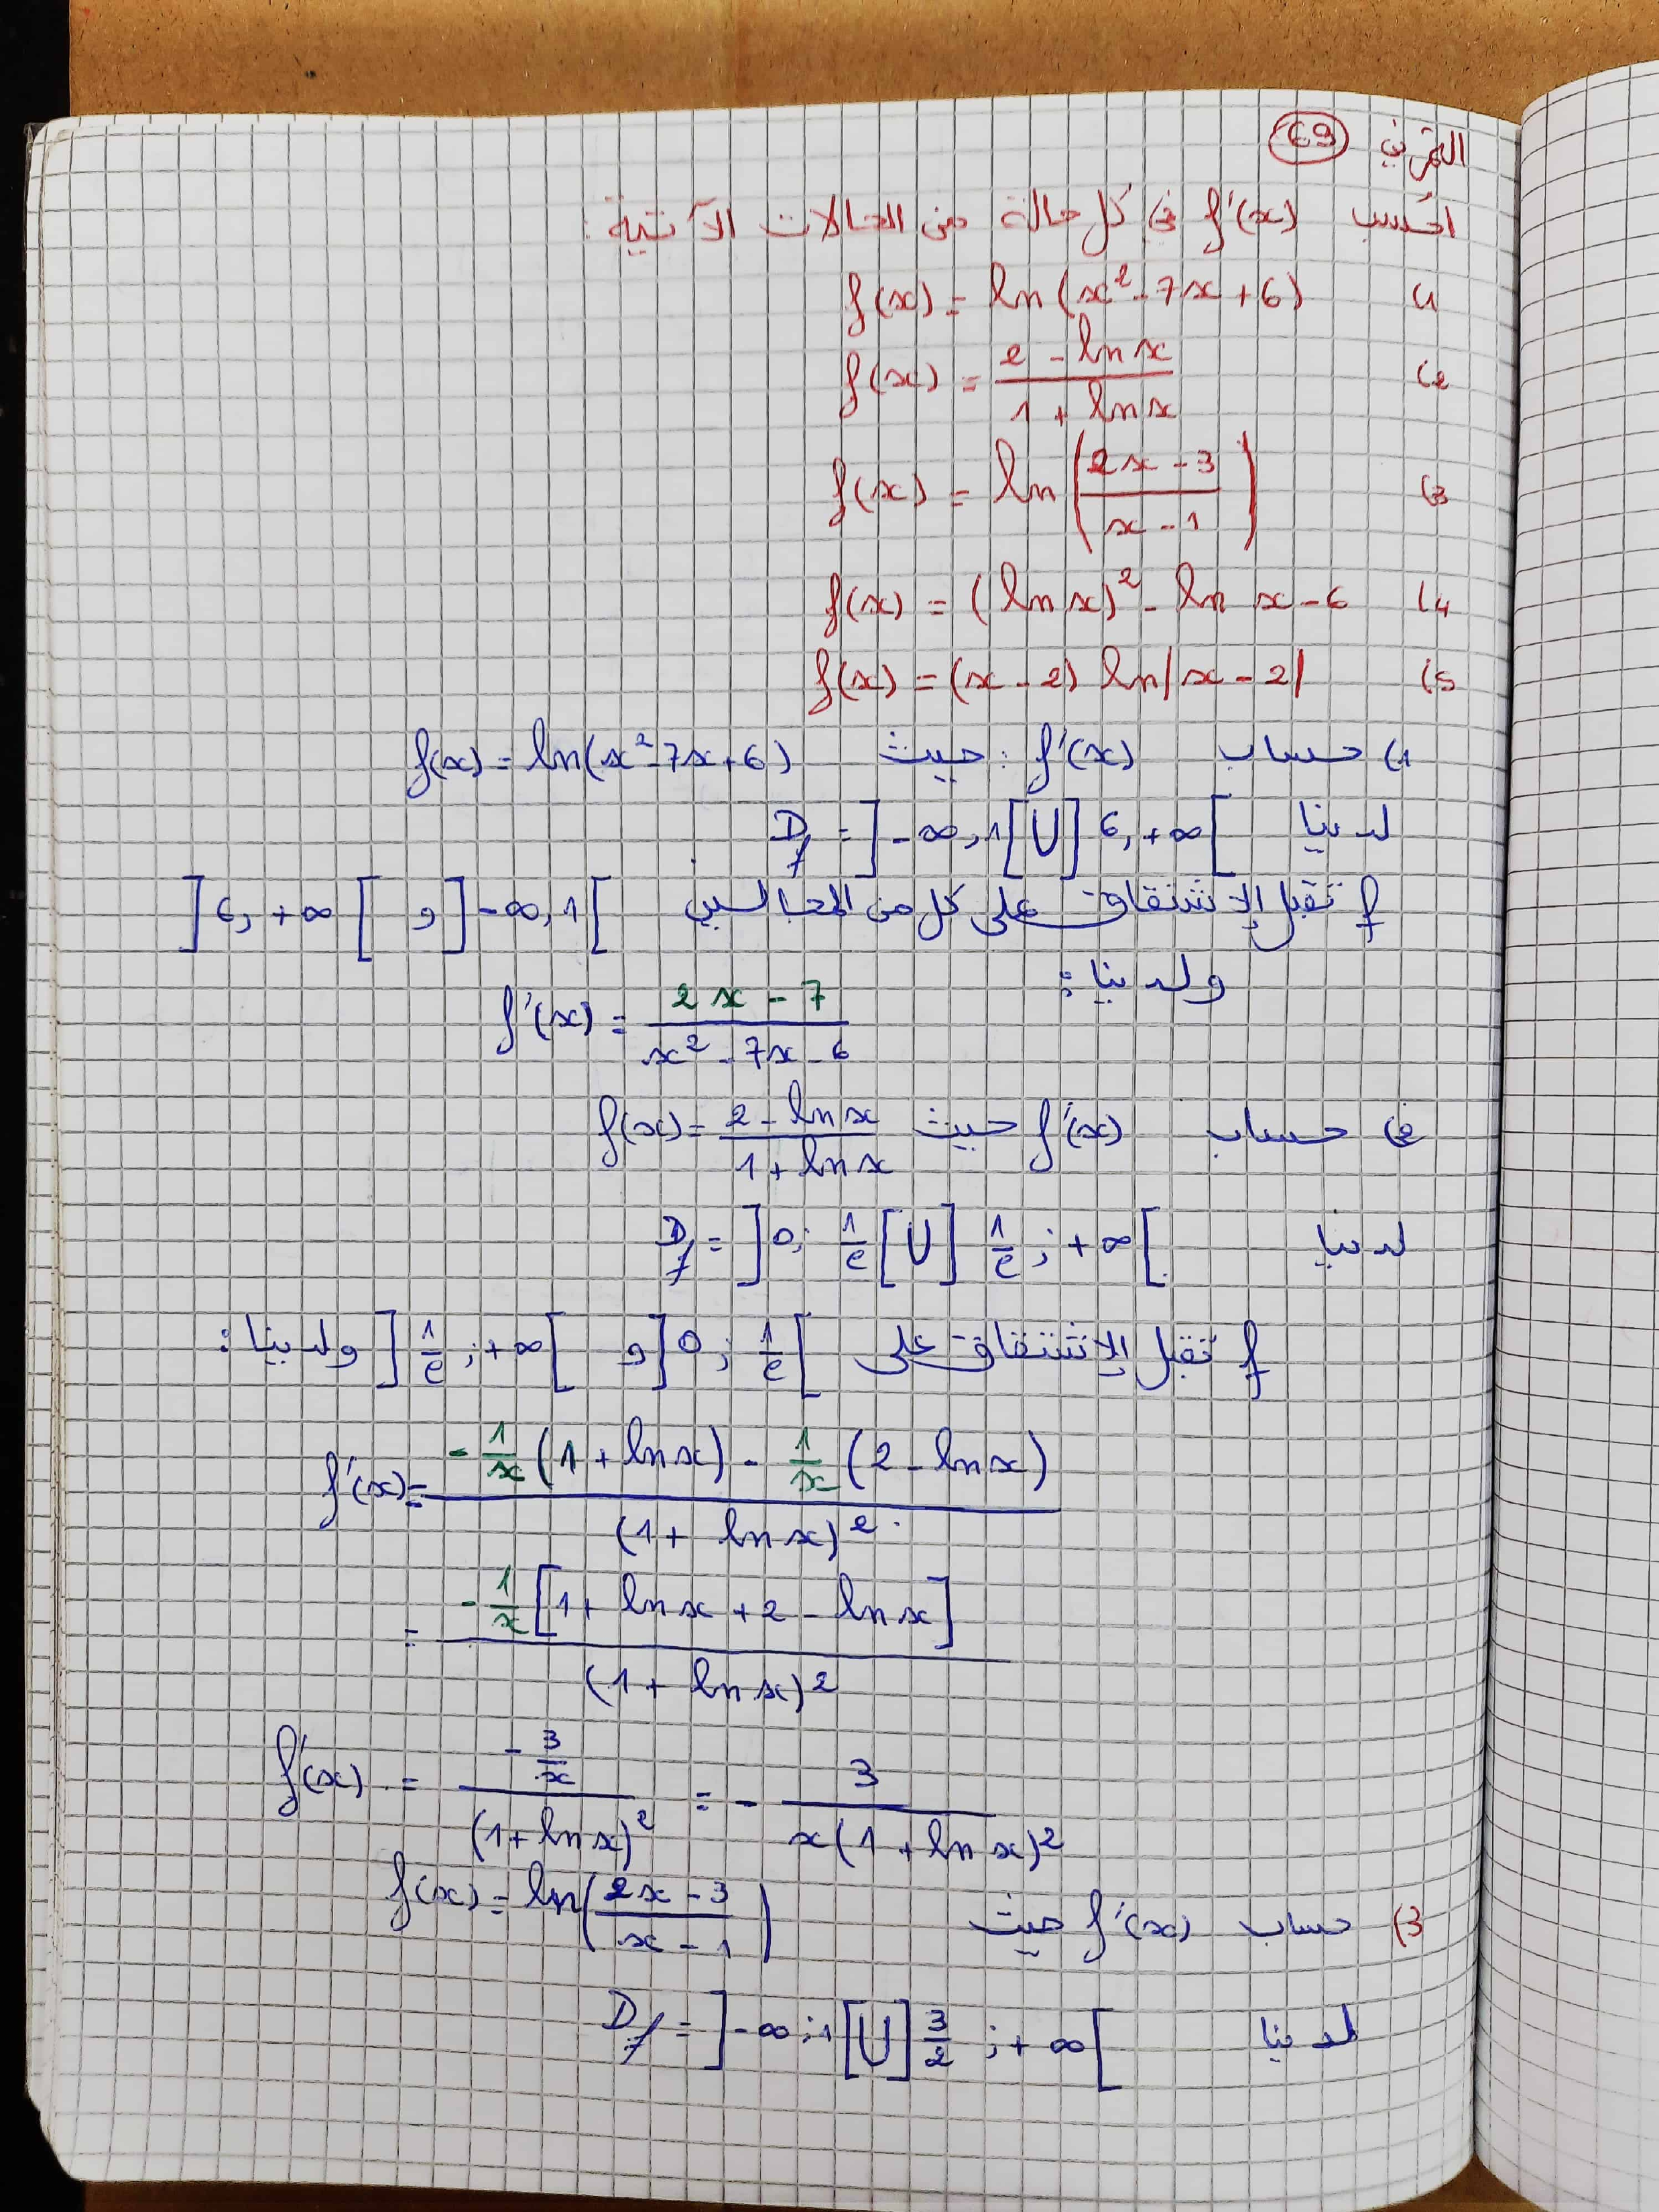 التمرين 69
أحسب f'(x) في كل حالة من الحالات الآتية:
1) f(x) = ln(x² - 7x + 6)
2) f(x) = (2 - ln x)/(1 + ln x)
3) f(x) = ln((2x - 3)/(x - 1))
4) f(x) = (ln x)² - ln x - 6
5) f(x) = (x - 2) ln|x - 2|
1) حساب f'(x) : حيث f(x) = ln(x² - 7x + 6)
لدينا D_f = ]-∞, 1[ U ]6, +∞[
f تقبل الإشتقاق على كل من المجالين ]-∞, 1[ و ]6, +∞[
ولدينا:
f'(x) = (2x - 7)/(x² - 7x - 6)
حساب f'(x) حيث f(x) = (2 - ln x)/(1 + ln x)
لدينا D_f = ]0; 1/e[ U ]1/e ; +∞[
f تقبل الإشتقاق على ]0; 1/e[ و ]1/e ; +∞[ ولدينا:
f'(x) = (-1/x (1 + ln x) - 1/x (2 - ln x))/(1 + ln x)²
= (-1/x [1 + ln x + 2 - ln x])/(1 + ln x)²
f'(x) = (-3/x)/(1 + ln x)² = - 3/(x(1 + ln x)²)
3) حساب f'(x) حيث f(x) = ln((2x - 3)/(x - 1))
لدينا D_f = ]-∞ ; 1[ U ]3/2 ; +∞[